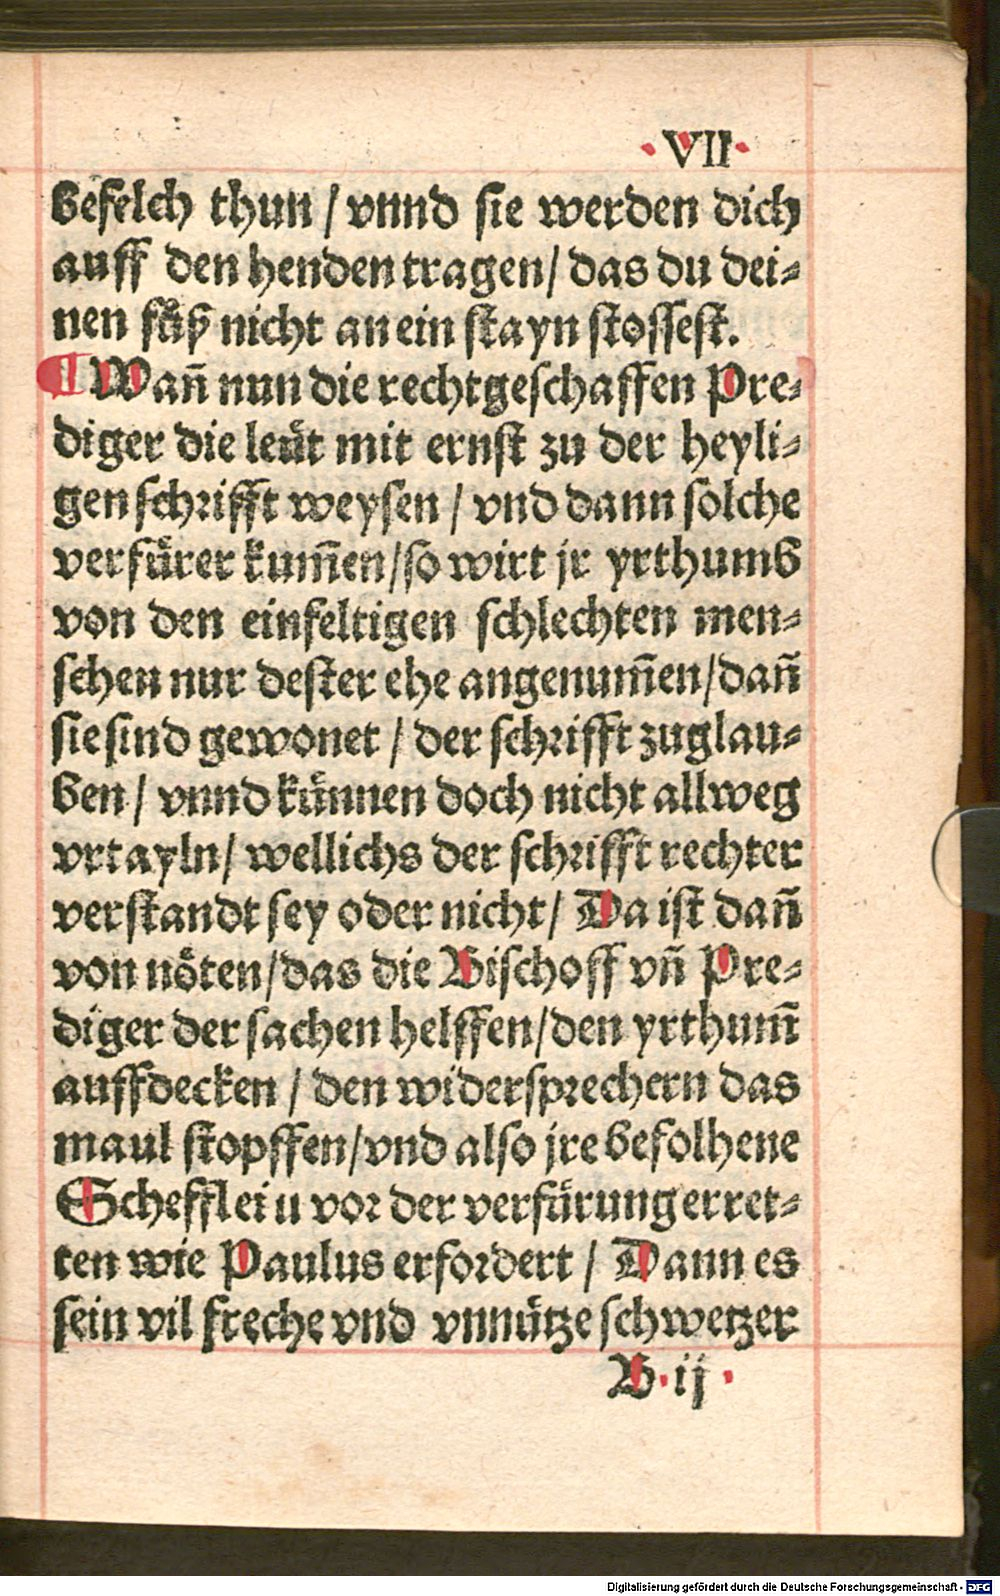 ·VII·
befelch thun / vnnd sie werden dich
auff den henden tragen / das du dei⸗
nen fuͤß nicht an ein stayn stossest.
¶ Wañ nun die rechtgeschaffen Pre⸗
diger die leuͤt mit ernst zu der heyli⸗
gen schrifft weysen / vnd dann solche
verfuͤrer kum̄en / so wirt jr yrthumb
von den einfeltigen schlechten men⸗
schen nur dester ehe angenum̄en / dañ
sie sind gewonet / der schrifft zuglau⸗
ben / vnnd kuͤnnen doch nicht allweg
vrtayln / wellichs der schrifft rechter
verstandt sey oder nicht / Da ist dañ
von noͤten / das die Bischoff vñ Pre⸗
diger der sachen helffen / den yrthum̄
auffdecken / den widersprechern das
maul stopffen / vnd also jre befolhene
Schefflein vor der verfuͤrung erret⸗
ten wie Paulus erfordert / Dann es
sein vil freche vnd vnnuͤtze schwetzer
B·ij·
Digitalisierung gefördert durch die Deutsche Forschungsgemeinschaft - DFG